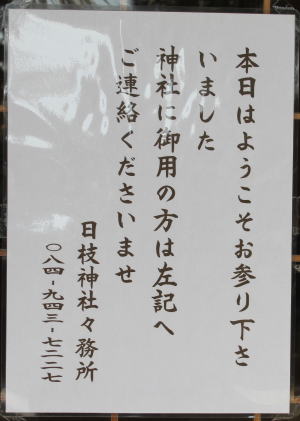 本日はようこそお参り下さ
いました
神社に御用の方は左記へ
ご連絡くださいませ
日枝神社々務所
〇八四-九四三-七二二七